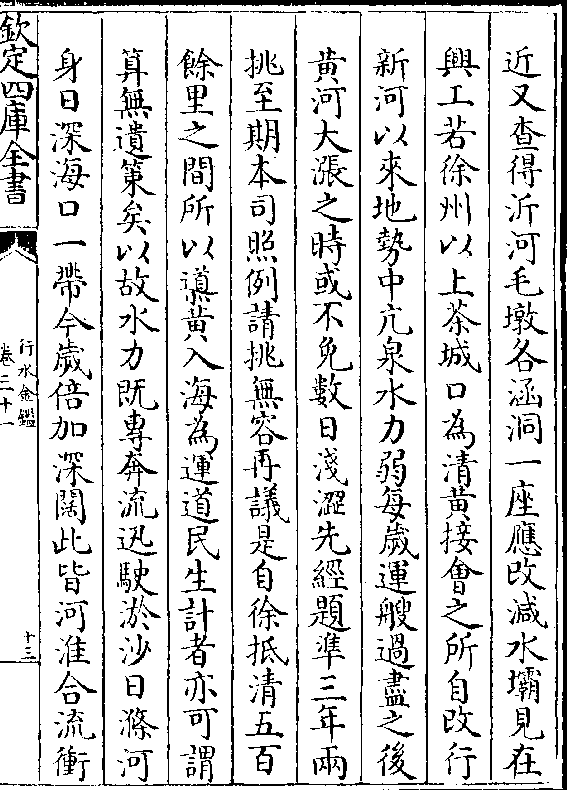 近又查得沂河毛墩各涵洞一座應改減水壩見在
興工若徐州以上茶城口為清黄接會之所自改行
新河以來地勢中亢泉水力弱每歲運艘過盡之後
黄河大漲之時或不免數日淺澀先經題準三年兩
挑至期本司照例請挑無容再議是自徐抵清五百
餘里之間所以導黄入海為運道民生計者亦可謂
算無遺策矣以故水力既專奔流迅駛淤沙日滌河
身日深海口一帶今歲倍加深闊此皆河淮合流衝
欽定四庫全書
行水金鑑
卷三十一
十三